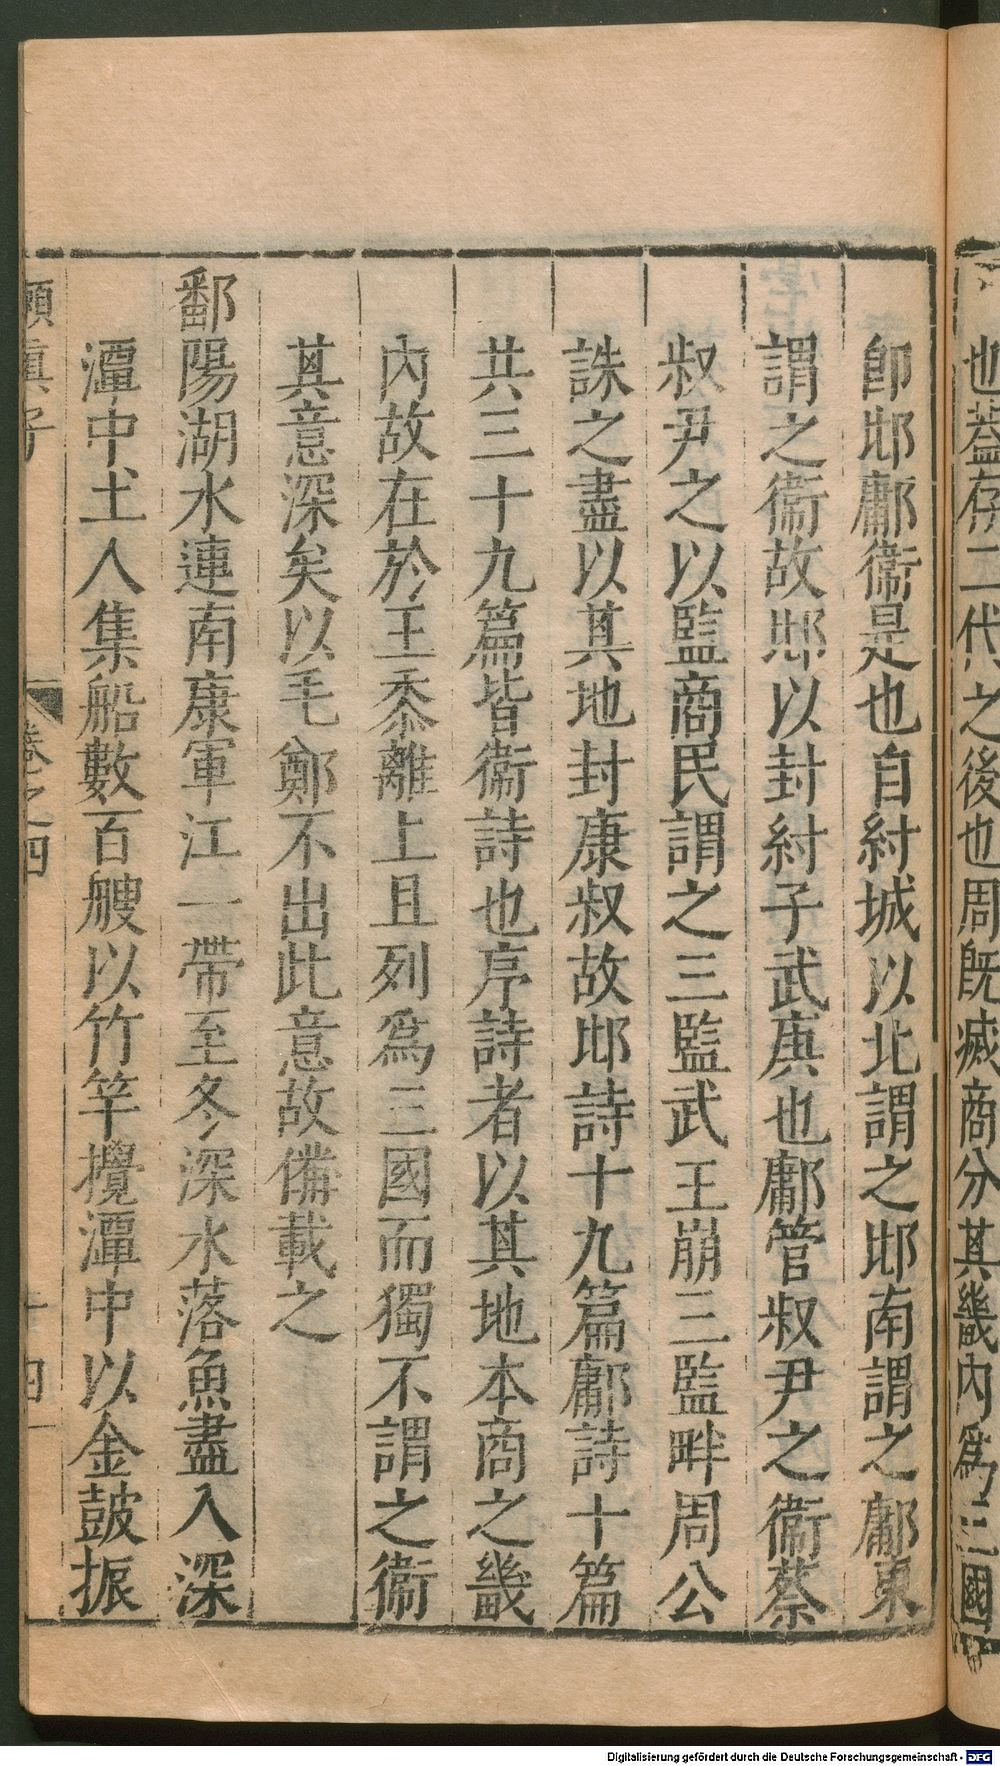 也蓋存二代之後也周旣滅商分其畿内爲三國
卽邶鄘衞是也自紂城以北謂之邶南謂之鄘東
謂之衞故邶以封紂子武庚也鄘管叔尹之衞蔡
叔尹之以監商民謂之三監武王崩三監畔周公
誅之盡以其地封康叔故邶詩十九篇鄘詩十篇
共三十九篇皆衞詩也序詩者以其地本商之畿
内故在於王黍離上且列爲三國而獨不謂之衞
其意深矣以毛鄭不出此意故備載之
鄱陽湖水連南康軍江一帶至冬深水落魚盡入深
潭中土人集船數百艘以竹竿攪潭中以金鼓振
嬾眞子 卷之四 十四
Digitalisierung gefördert durch die Deutsche Forschungsgemeinschaft - DFG